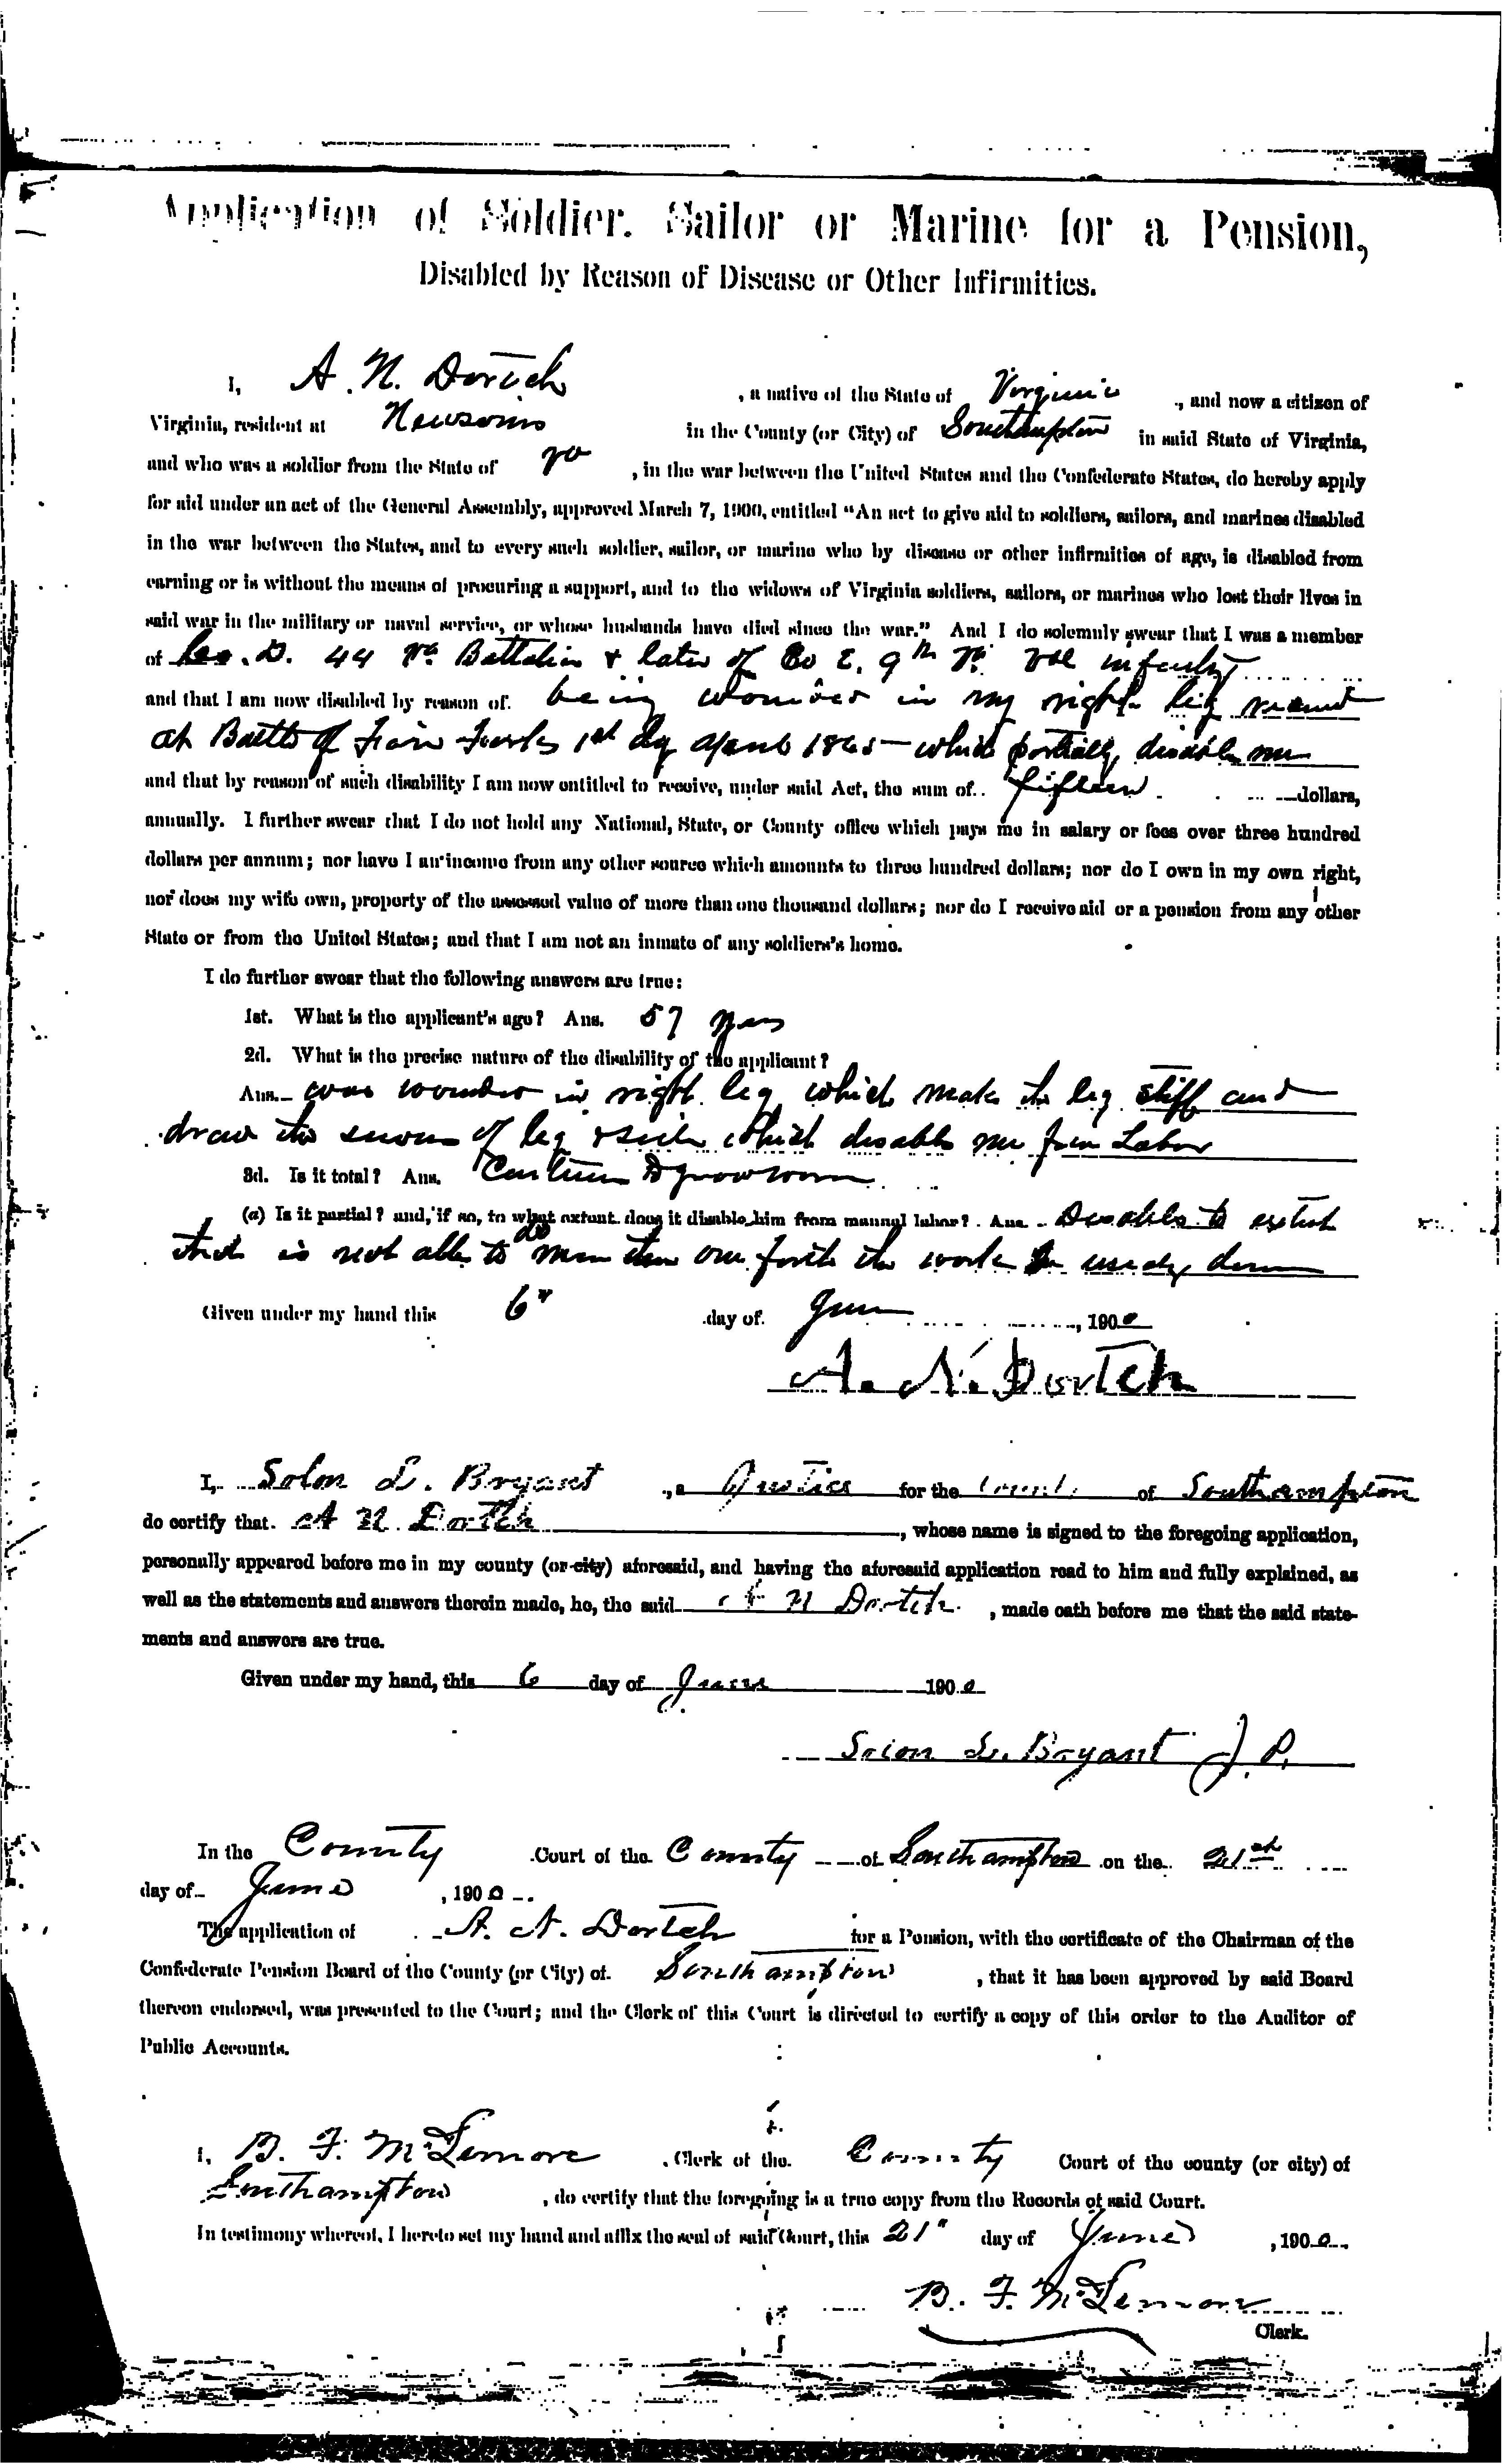 Application of Soldier, Sailor or Marine for a Pension,
Disabled by Reason of Disease or Other Infirmities.
I, A. N. Dortch, a native of the State of Virginia, and now a citizen of
Virginia, resident at Newsoms in the County (or City) of Southampton in said State of Virginia,
and who was a soldier from the State of Va, in the war between the United States and the Confederate States, do hereby apply
for aid under an act of the General Assembly, approved March 7, 1900, entitled "An act to give aid to soldiers, sailors, and marines disabled
in the war between the States, and to every such soldier, sailor, or marine who by disease or other infirmities of age, is disabled from
earning or is without the means of procuring a support, and to the widows of Virginia soldiers, sailors, or marines who lost their lives in
said war in the military or naval service, or whose husbands have died since the war." And I do solemnly swear that I was a member
of Co. D. 44 Va. Battalion & later of Co E, 9th Va Vol infantry
and that I am now disabled by reason of being wounded in my right leg
at Battle of Five Forks 1st day April 1865 which partially disable me
and that by reason of such disability I am now entitled to receive, under said Act, the sum of fifteen dollars,
annually. I further swear that I do not hold any National, State, or County office which pays me in salary or fees over three hundred
dollars per annum; nor have I an income from any other source which amounts to three hundred dollars; nor do I own in my own right,
nor does my wife own, property of the assessed value of more than one thousand dollars; nor do I receive aid or a pension from any other
State or from the United States; and that I am not an inmate of any soldiers's home.
I do further swear that the following answers are true:
1st. What is the applicant's age? Ans. 57 years
2d. What is the precise nature of the disability of the applicant?
Ans. was wounded in right leg which make the leg stiff and
draw the of leg which disable me from Labor
3d. Is it total? Ans.
(a) Is it partial? and, if so, to what extent does it disable him from manual labor? Ans. Disable to extent
that is not able to do more than one forth the work usualy done
Given under my hand this 6" day of June, 1900
A. N. Dortch
I, Solon L. Bryant, a Justice for the County of Southampton
do certify that A N Dortch, whose name is signed to the foregoing application,
personally appeared before me in my county (or city) aforesaid, and having the aforesaid application read to him and fully explained, as
well as the statements and answers therein made, he, the said A N Dortch, made oath before me that the said state-
ments and answers are true.
Given under my hand, this 6 day of June 1900
Solon L. Bryant J. P.
In the County Court of the County of Southampton on the 21st
day of June, 1900.
The application of A. N. Dortch for a Pension, with the certificate of the Chairman of the
Confederate Pension Board of the County (or City) of Southampton, that it has been approved by said Board
thereon endorsed, was presented to the Court; and the Clerk of this Court is directed to certify a copy of this order to the Auditor of
Public Accounts.
I, B. F. McLemore, Clerk of the County Court of the county (or city) of
Southampton, do certify that the foregoing is a true copy from the Records of said Court.
In testimony whereof, I hereto set my hand and affix the seal of said Court, this 21" day of June, 1900.
B. F. McLemore
Clerk.